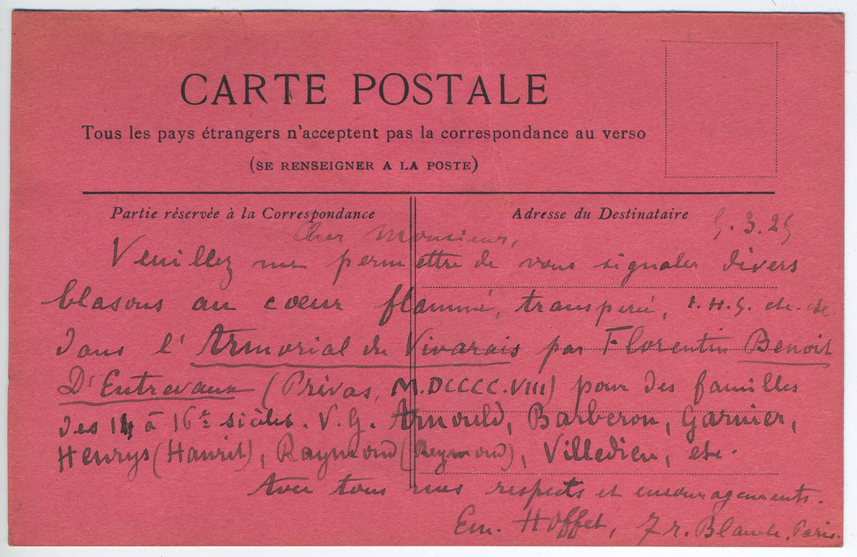 CARTE POSTALE
Tous les pays étrangers n'acceptent pas la correspondance au verso
(SE RENSEIGNER A LA POSTE)
Partie réservée à la Correspondance
Adresse du Destinataire
.3.25
Cher Monsieur,
Veuillez me permettre de vous signaler divers
blasons au coeur flammé, transpercé, I.H.S. etc. etc
dans l'Armorial du Vivarais par Florentin Benoit
D'Entrevaux (Privas, M.DCCCC.VIII) pour des familles
des 14 à 16e siècles. V.G. Arnould, Barberon, Garnier,
Henrys (Hanris), Raymond (Reymond), Villedieu, etc.
Avec tous mes respects et encouragements.
Em. Hoffet, 7 r. Blanche. Paris.